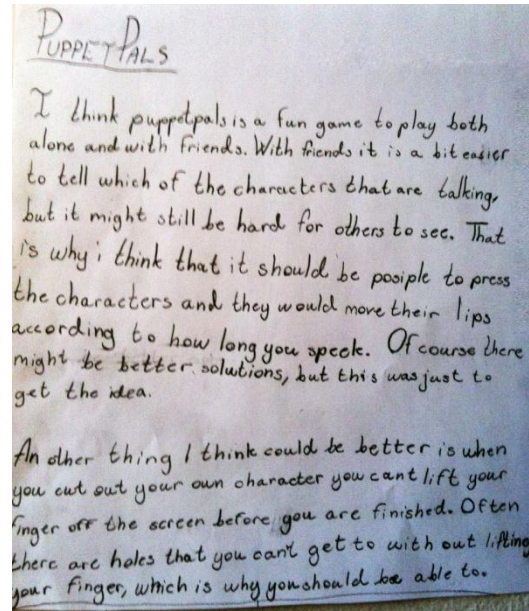 PUPPETPALS
I think puppetpals is a fun game to play both
alone and with friends. With friends it is a bit easier
to tell which of the characters that are talking,
but it might still be hard for others to see. That
is why i think that it should be posiple to press
the characters and they would move their lips
according to how long you speek. Of course there
might be better solutions, but this was just to
get the idea.
An other thing I think could be better is when
you cut out your own character you cant lift your
finger off the screen before you are finished. Often
there are holes that you can't get to with out lifting
your finger, which is why you should be able to.